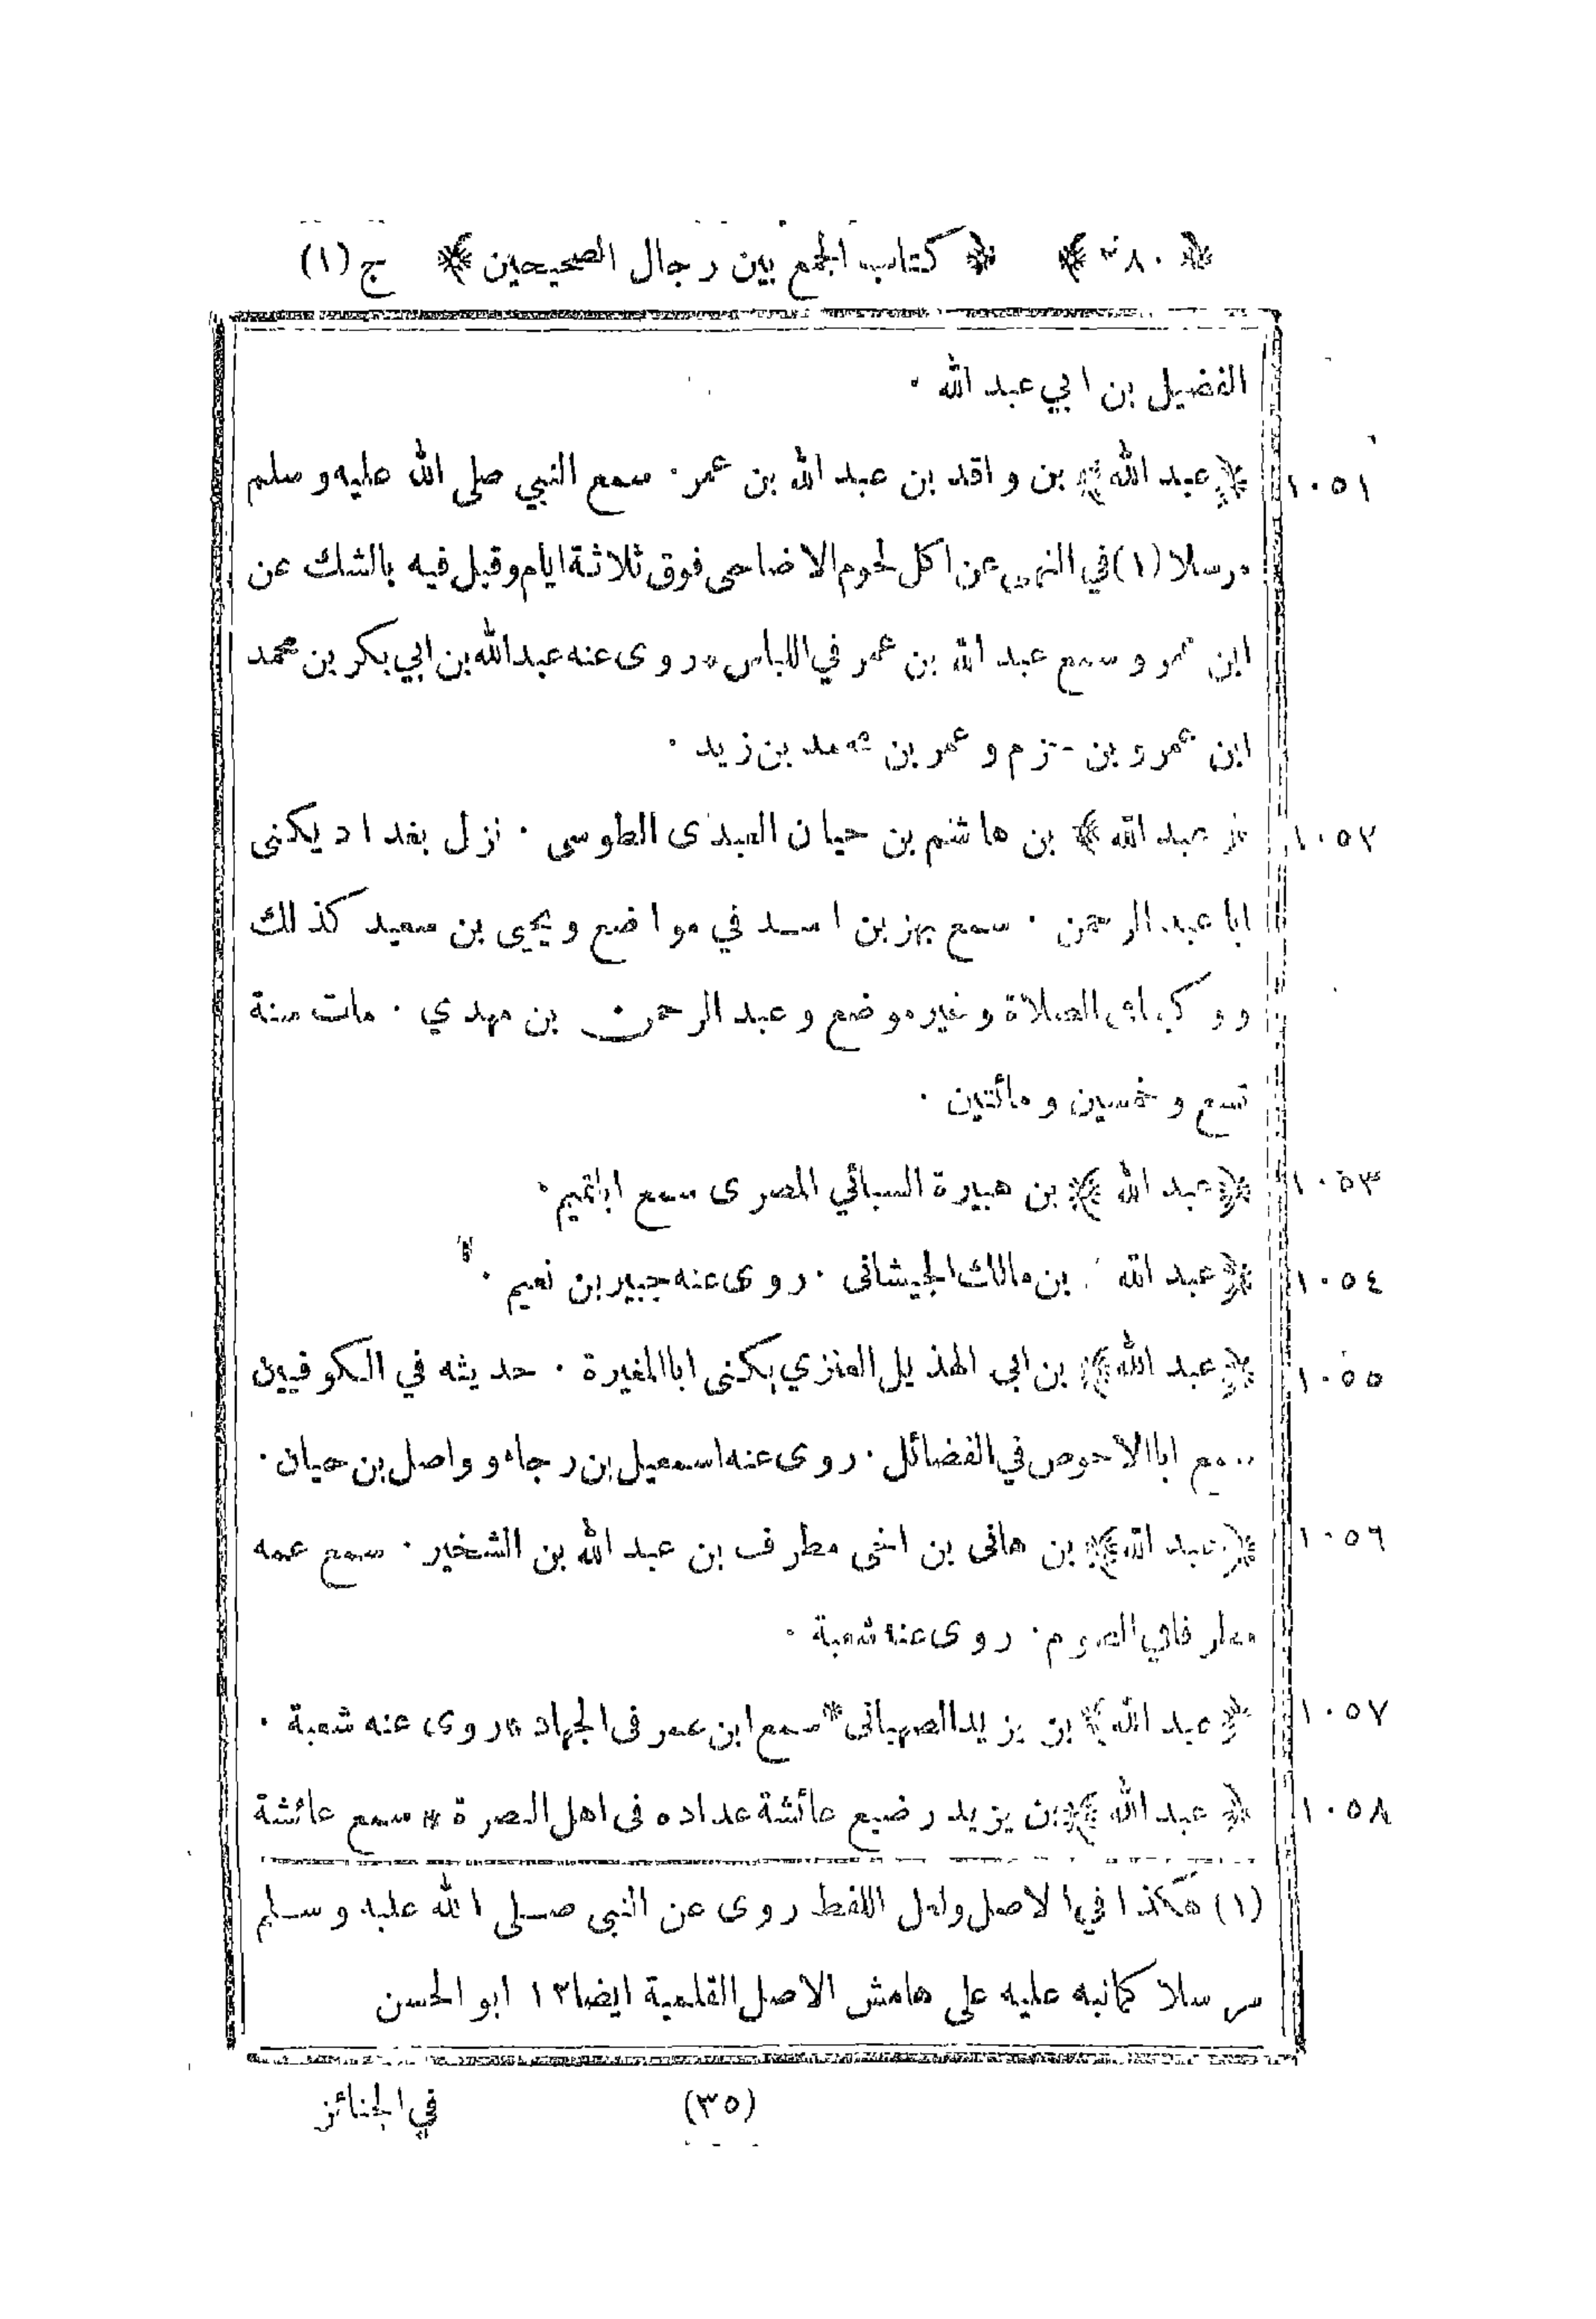 ﴿٢٨٠﴾ ﴿كتاب الجمع بين رجال الصحيحين﴾ ج (١)
الفضيل بن ابي عبد الله ٠
١٠٥١ ﴿عبد الله﴾ بن واقد بن عبد الله بن عمر ٠ سمع النبي صلى الله عليه وسلم
مرسلا (١) في النهى عن اكل لحوم الاضاحى فوق ثلاثة ايام وقيل فيه بالشك عن
ابن عمر وسمع عبد الله بن عمر في اللباس * روى عنه عبد الله بن ابي بكر بن محمد
ابن عمرو بن حزم وعمر بن محمد بن زيد ٠
١٠٥٢ ﴿عبد الله﴾ بن هاشم بن حيان العبدى الطوسى ٠ نزل بغداد يكنى
ابا عبد الرحمن ٠ سمع بهز بن اسد في مواضع ويحيى بن سعيد كذلك
ووكيعا في الصلاة وغير موضع وعبد الرحمن بن مهدي ٠ مات سنة
تسع وخمسين ومائتين ٠
١٠٥٣ ﴿عبد الله﴾ بن هبيرة السبائي المصرى سمع اباتميم ٠
١٠٥٤ ﴿عبد الله بن مالك الجيشانى ٠ روى عنه جبير بن نعيم ٠
١٠٥٥ ﴿عبد الله﴾ بن ابى الهذيل العنزي يكنى ابا المغيرة ٠ حديثه في الكوفيين
سمع ابا الاحوص في الفضائل ٠ روى عنه اسمعيل بن رجاء وواصل بن حيان ٠
١٠٥٦ ﴿عبد الله﴾ بن هانى بن اخى مطرف بن عبد الله بن الشخير ٠ سمع عمه
مطرفا في الصوم ٠ روى عنه شعبة ٠
١٠٥٧ ﴿عبد الله﴾ بن يزيد الصهبانى * سمع ابن عمر فى الجهاد * روى عنه شعبة ٠
١٠٥٨ ﴿عبد الله﴾ بن يزيد رضيع عائشة عداده فى اهل البصرة * سمع عائشة
(١) هكذا في الاصل ولعل اللفظ روى عن النبى صلى الله عليه وسلم
مرسلا كما نبه عليه على هامش الاصل القلمية ايضا ١٢ ابو الحسن
(٣٥) في الجنائز